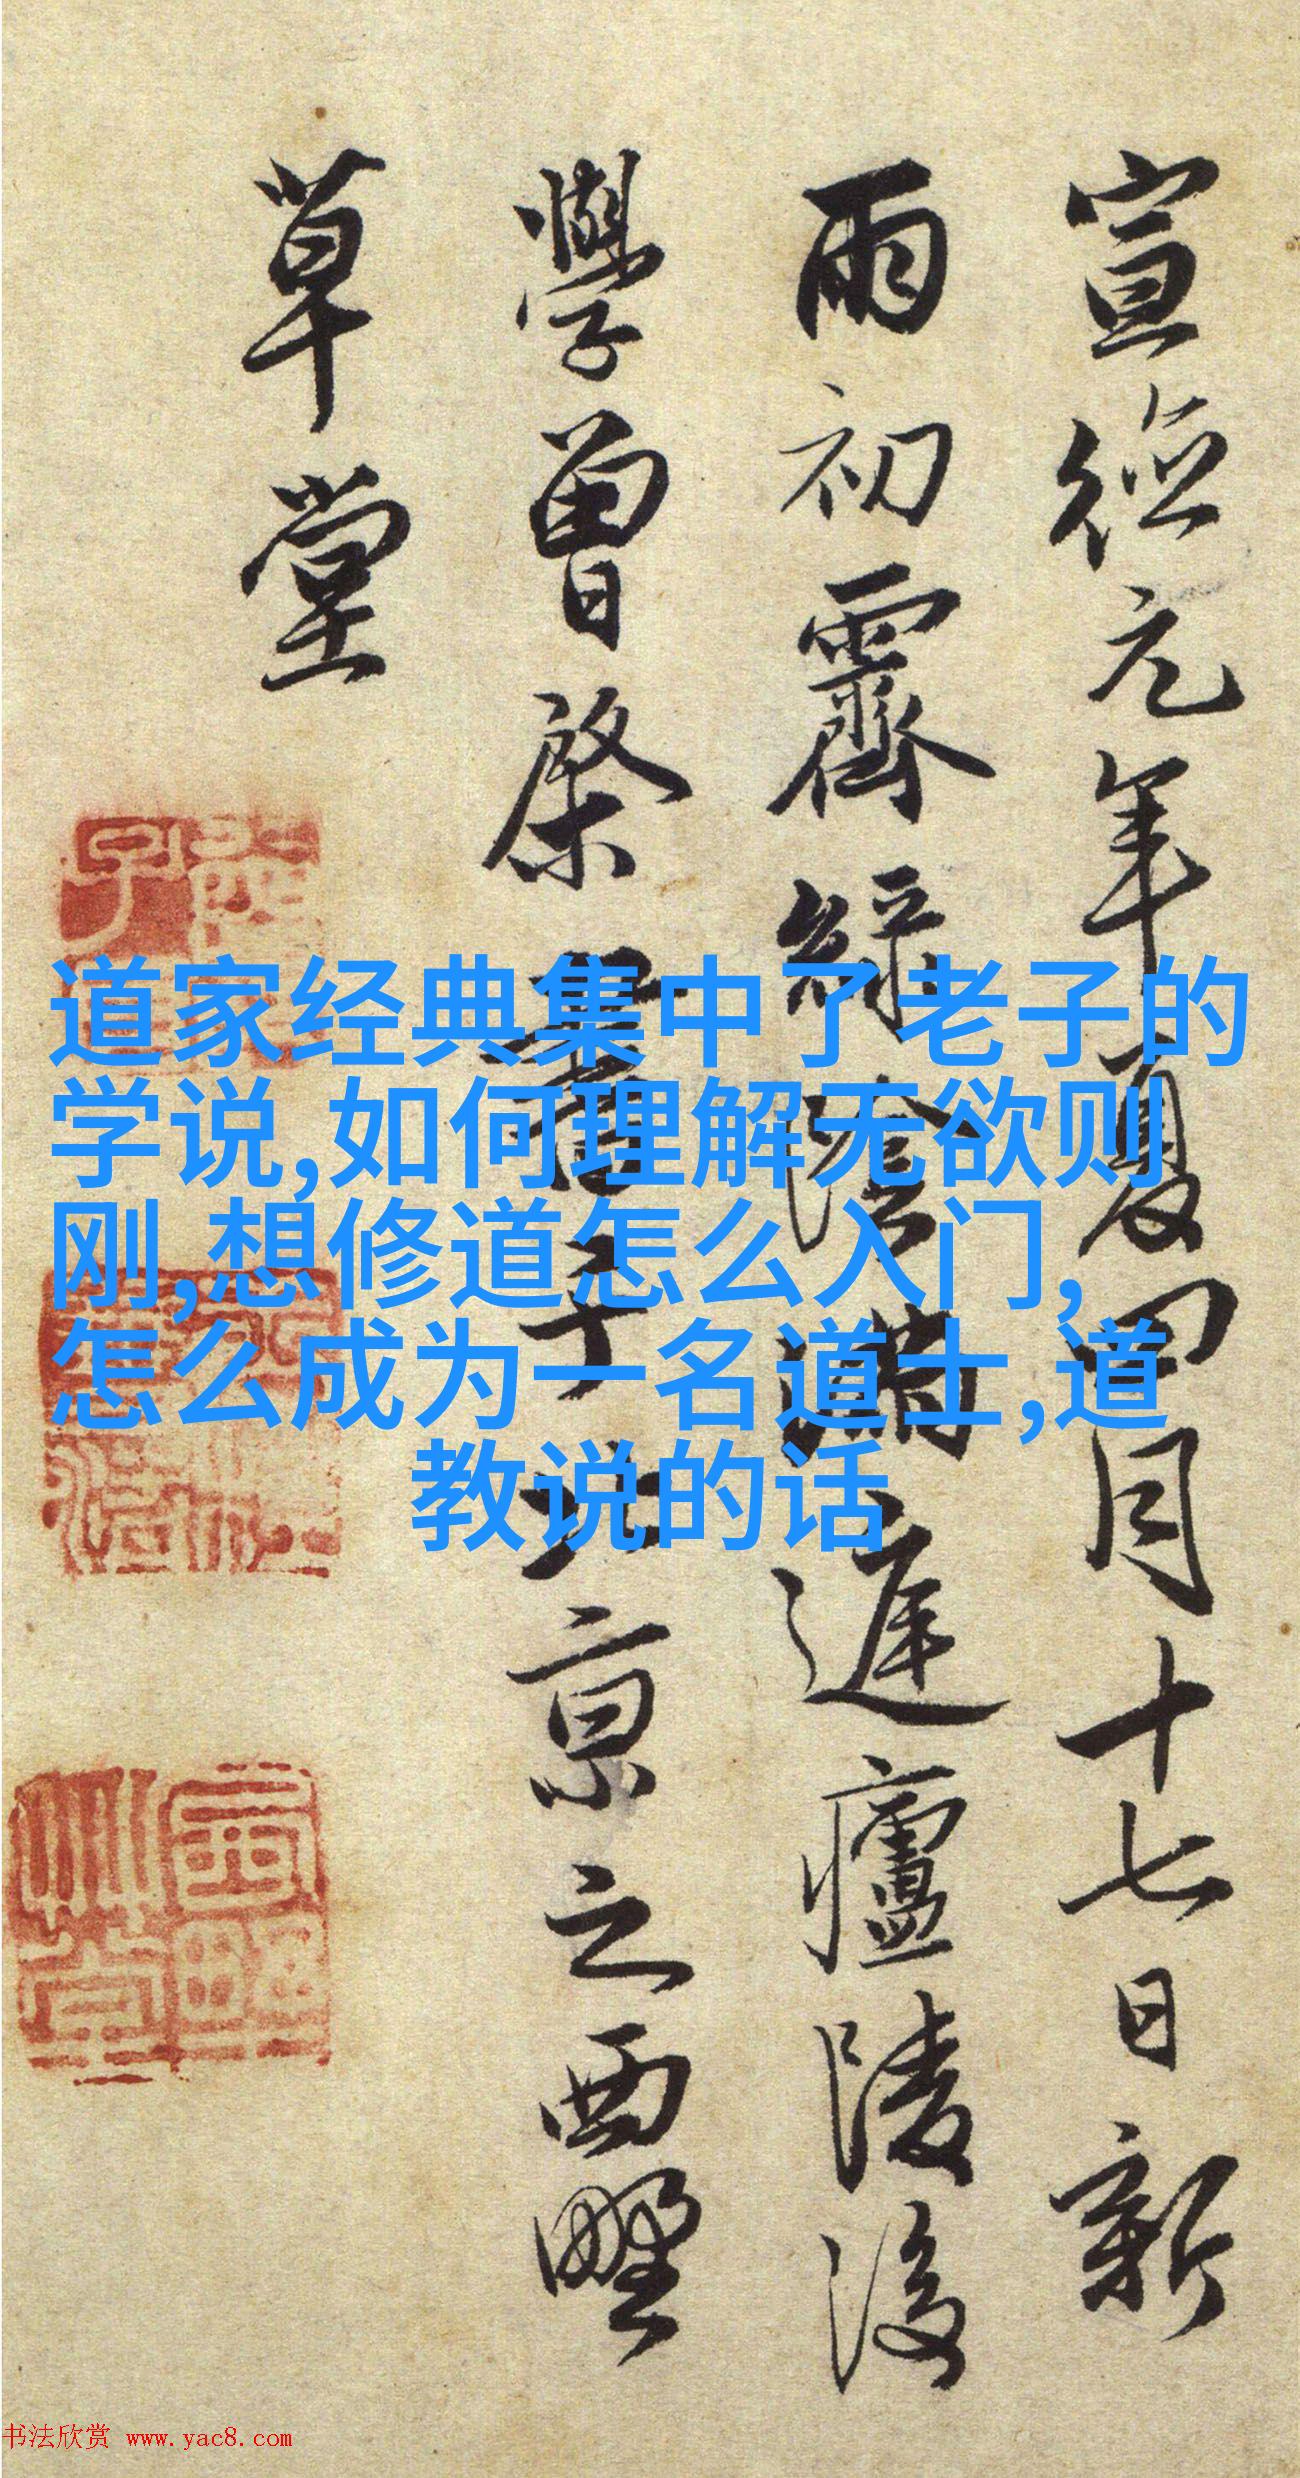 宣德元年夏四月十七日新
雨初霽緑陰滿庭廬陵後
學曾棨書于北京之西墅
草堂
道家经典集中了老子的
学说,如何理解无欲则
刚,想修道怎么入门,
怎么成为一名道士,道
教说的话
书法欣赏 www.yac8.com